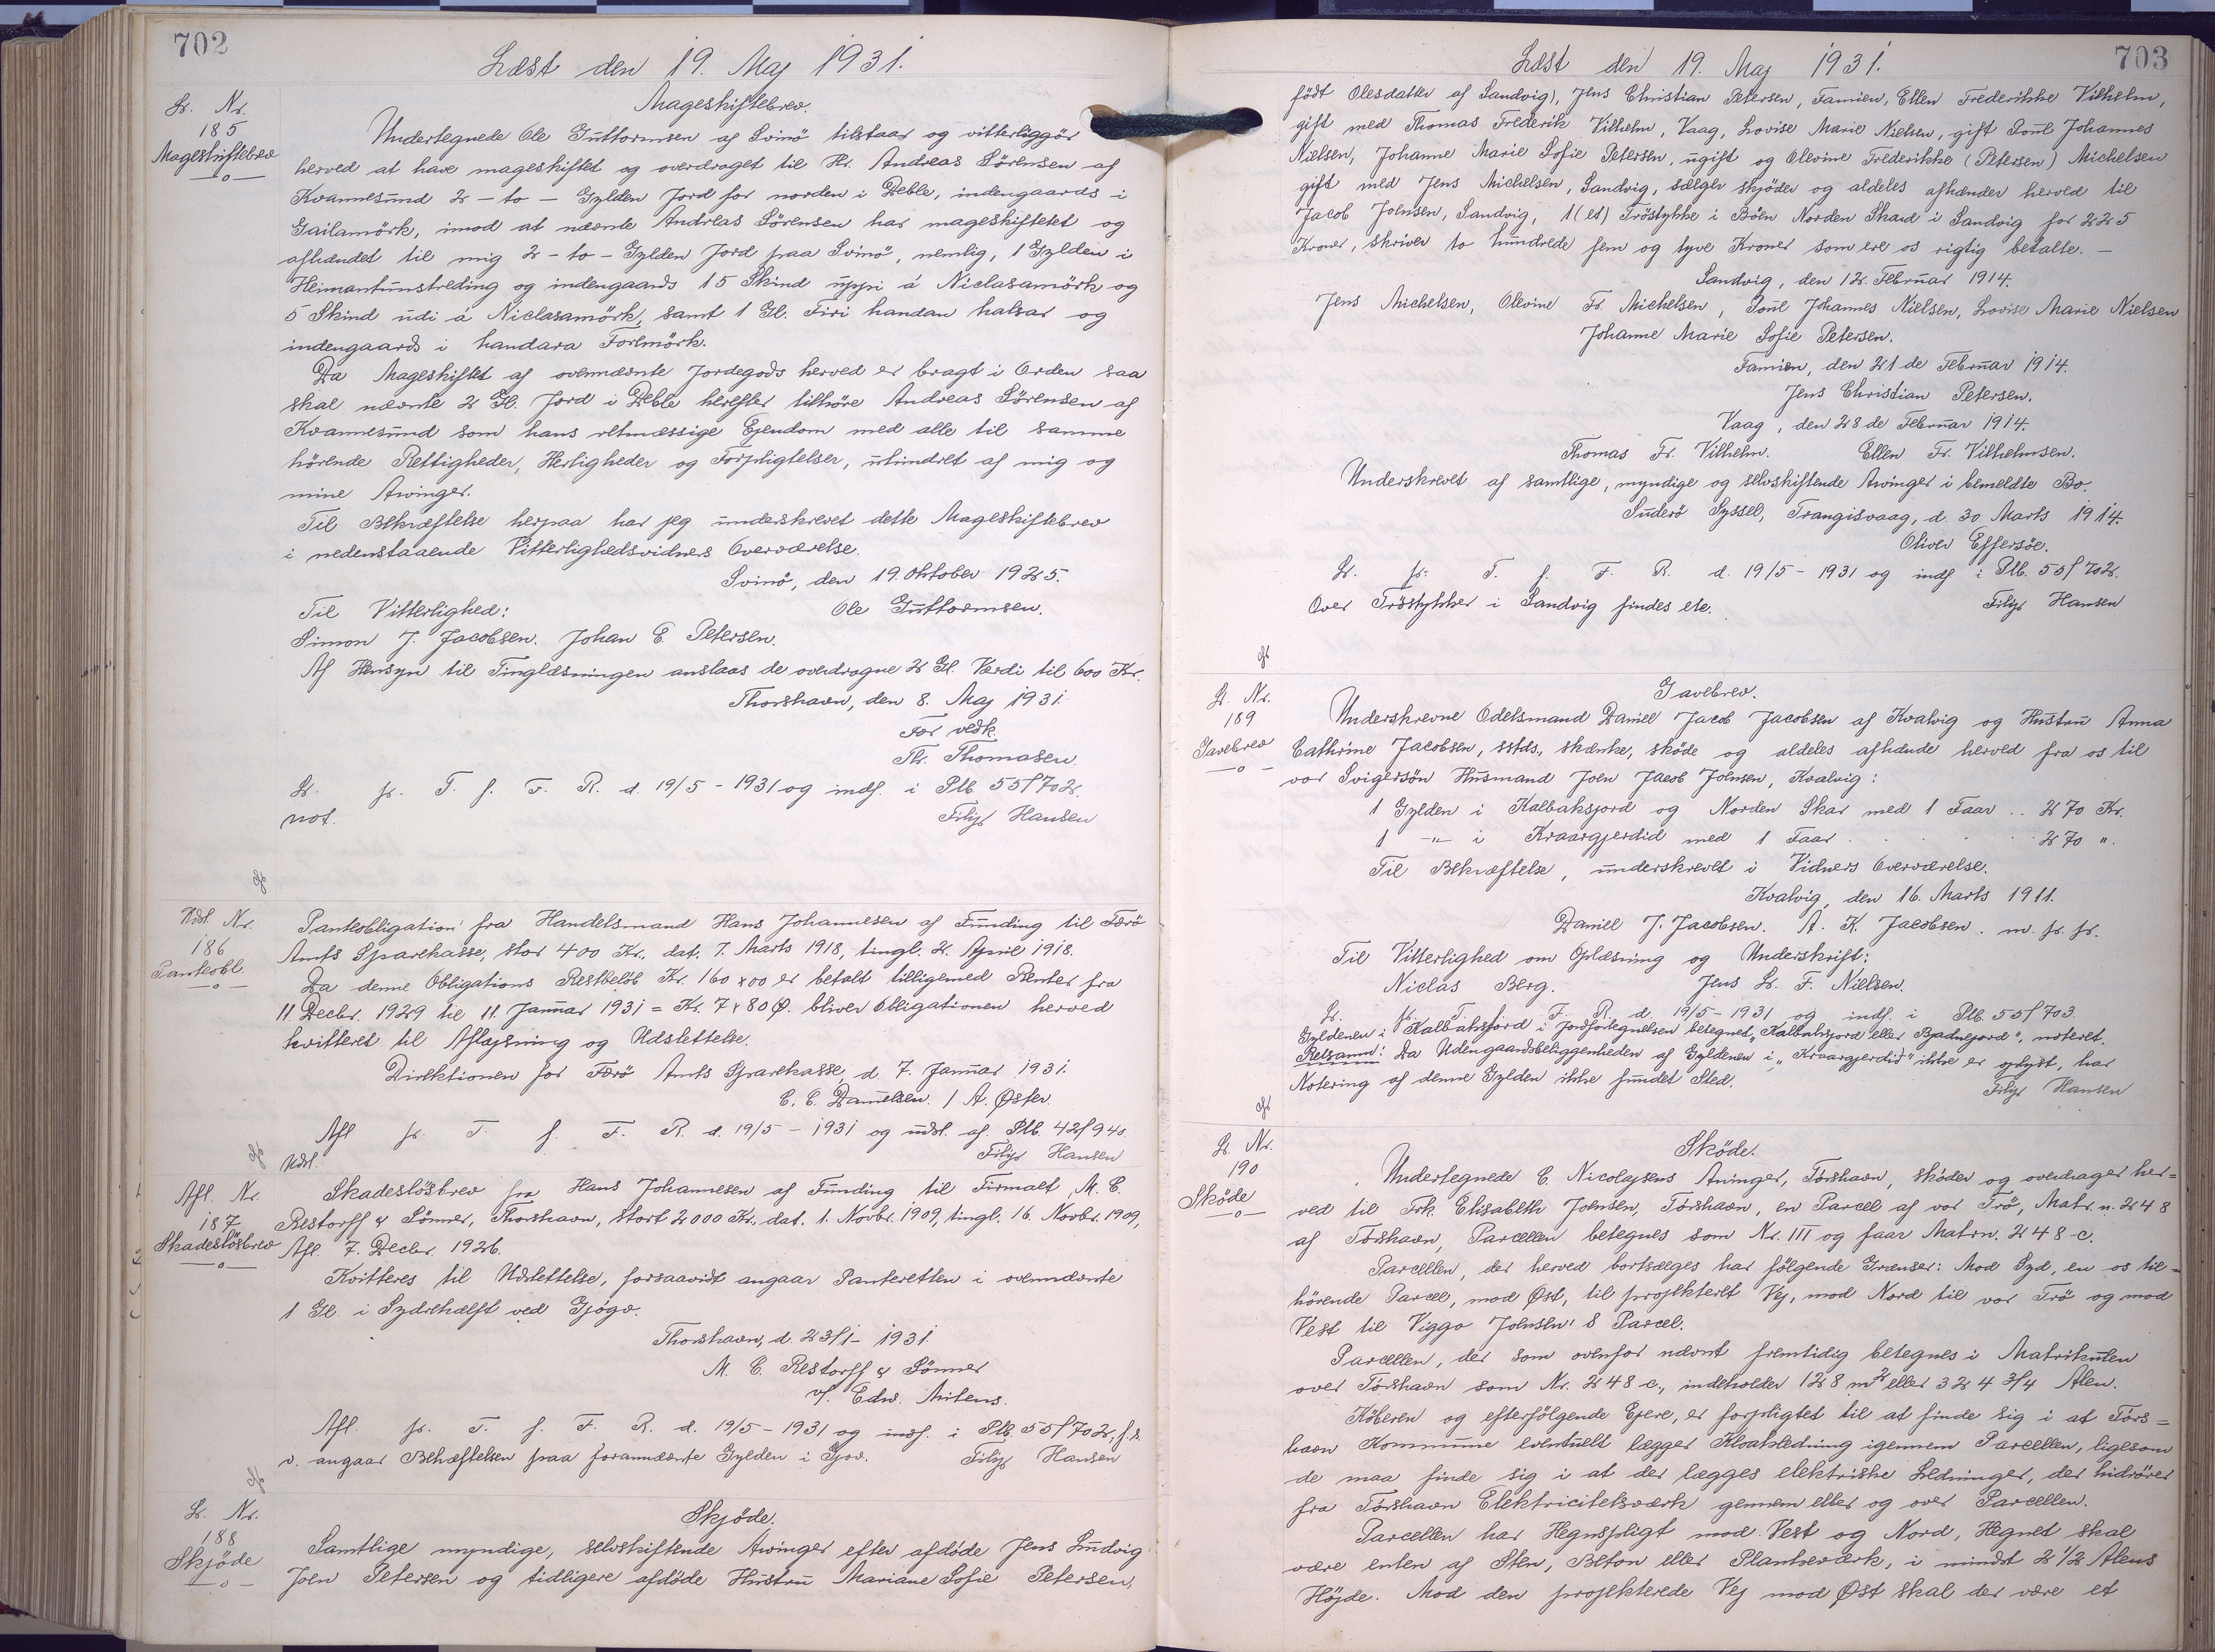 702
Læst den 19. Maj 1931.
L. Nr.
185
Mageskiftebrev
Mageskiftebrev.
Undertegnede Ole Guttormsen af Svinö tilstaar og vitterliggör
herved at have mageskiftet og overdraget til Hr. Andreas Sörensen af
Kvannesund 2 - to - Gylden Jord for norden i Deble, indengaards i
Gailamörk, imod at nævnte Andreas Sörensen har mageskiftetet og
afhændet til mig 2 - to - Gylden Jord paa Svinö, nemlig, 1 Gylden i
Heimantunstreding og indengaards 15 Skind uppi á Niclasamörk og
5 Skind udi á Niclasamörk, samt 1 Gl. Firi handan halsar og
indengaards i handara Forlmörk.
Da Mageskiftet af ovennævnte Jordegods herved er bragt i Orden saa
skal nævnte 2 Gl. Jord i Deble herefter tilhöre Andreas Sörensen af
Kvannesund som hans retmæssige Ejendom med alle til samme
hörende Rettigheder, Herligheder og Forpligtelser, uhindret af mig og
mine Arvinger.
Til Bekræftelse herpaa har jeg underskrevet dette Mageskiftebrev
i nedenstaaende Vitterlighedsvidners Overværelse.
Svinö, den 19. Oktober 1925.
Til Vitterlighed: Ole Guttormsen.
Simon J. Jacobsen. Johan E. Petersen.
Af Hensyn til Tinglæsningen anslaas de overdragne 2 Gl. Værdi til 600 Kr.
Thorshavn, den 8. Maj 1931.
For vedk.
Th. Thomasen.
L. p. T. f. F. R. d. 19/5 - 1931 og indf. i Ptb. 55f702.
not. Filip Hansen
Udsl. Nr.
186
Panteobl.
Panteobligation fra Handelsmand Hans Johannesen af Funding til Færö
Amts Sparekasse, stor 400 Kr. dat. 7. Marts 1918, tingl. 2. April 1918.
Da denne Obligations Restbelöb Kr. 160 x 00 er betalt tilligemed Renter fra
11. Decbr. 1929 til 11. Januar 1931 = Kr. 7 x 80 Ø. bliver Obligationen herved
kvitteret til Aflysning og Udslettelse.
Direktionen for Færö Amts Sparekasse d. 7. Januar 1931.
C. C. Danielsen. / A. Øster.
Afl p. T. f. F. R. d. 19/5 - 1931 og udsl. af. Ptb. 42f940.
Udsl. Filip Hansen
Afl. Nr.
187
Skadeslösbrev
Skadeslösbrev fra Hans Johannesen af Funding til Firmaet, M. C.
Restorff & Sönner, Thorshavn, stort 2000 Kr., dat. 1. Novbr. 1909, tingl. 16. Novbr. 1909,
Afl. 7. Decbr. 1926.
Kvitteres til Udslettelse, forsaavidt angaar Panteretten i ovennævnte
1 Gl. i Sydrehælft ved Gjógv.
Thorshavn, d. 23/1 - 1931
M. C. Restorff & Sönner
v/. Edw. Mitens.
Afl. p. T. f. F. R. d. 19/5 - 1931 og indf. i Ptb. 55f702, f. s.
v. angaar Behæftelsen paa forannævnte Gylden i Gjov. Filip Hansen
L. Nr.
188
Skjöde
Skjöde.
Samtlige myndige, selvskiftende Arvinger efter afdöde Jens Ludvig
Joen Petersen og tidligere afdöde Hustru Mariane Sofie Petersen,
703
Læst den 19. Maj 1931.
födt Olesdatter af Sandvig), Jens Christian Petersen, Famien, Ellen Frederikke Vilhelm,
gift med Thomas Frederik Vilhelm, Vaag, Lovise Marie Nielsen, gift Poul Johannes
Nielsen, Johanne Marie Sofie Petersen, ugift og Olevine Frederikke (Petersen) Michelsen
gift med Jens Michelsen, Sandvig, sælger skjöder og aldeles afhænder herved til
Jacob Joensen, Sandvig, 1 (et) Tröstykke i Böen Norden Skard i Sandvig for 225
Kroner, skriver to hundrede fem og tyve Kroner som ere os rigtig betalte. -
Sandvig, den 12. Februar 1914.
Jens Michelsen, Olevine Fr. Michelsen, Poul Johannes Nielsen, Lovise Marie Nielsen
Johanne Marie Sofie Petersen.
Famien, den 21 de Februar 1914.
Jens Christian Petersen.
Vaag, den 28 de Februar 1914.
Thomas Fr. Vilhelm. Ellen Fr. Vilhelmsen.
Underskrevet af samtlige, myndige og selvskiftende Arvinger i bemeldte Bo.
Suderö Syssel, Trangisvaag, d. 30 Marts 1914.
Oliver Effersöe.
L. p. T. f. F. R. d. 19/5 - 1931 og indf. i Ptb. 55f702.
Over Tröstykker i Sandvig findes ete. Filip Hansen
L. Nr.
189
Gavebrev
Gavebrev.
Underskrevne Odelsmand Daniel Jacob Jacobsen af Kvalvig og Hustru Anna
Cathrine Jacobsen, sstds., skænke, sköde og aldeles afhænde herved fra os til
vor Svigersön Husmand Joen Jacob Joensen, Kvalvig:
1 Gylden i Kalbaksfjord og Norden Skar med 1 Faar .. 270 Kr.
1 -"- i Kraargjerdid med 1 Faar . . . . . 270 ".
Til Bekræftelse, underskrevet i Vidners Overværelse.
Kvalvig, den 16. Marts 1911.
Daniel J. Jacobsen. A. K. Jacobsen. m. p. p.
Til Vitterlighed om Oplæsning og Underskrift:
Niclas Berg. Jens L. F. Nielsen.
L. p. T. f. F. R. d. 19/5 - 1931 og indf. i Ptb. 55f703.
Gyldenen i Kalbaksfjord i Jordfortegnelsen betegnet "Kalbaksfjord eller Bjadnejord", noteret.
Retsanm: Da Udengaardsbeliggenheden af Gyldenen i "Kraargjerdid" ikke er oplyst, har
Notering af denne Gylden ikke fundet Sted. Filip Hansen
L. Nr.
190
Sköde
Sköde.
Undertegnede C. Nicolajsens Arvinger, Tórshavn, sköder og overdrager her=
ved til Frk. Elisabeth Joensen, Tórshavn, en Parcel af vor Trö, Matr. n. 248
af Tórshavn, Parcellen betegnes som Nr. III og faar Matrn. 248-c.
Parcellen, der herved bortsælges har fölgende Grænser: Mod Syd, en os til=
hörende Parcel, mod Øst, til projekteret Vej, mod Nord til vor Trö og mod
Vest til Viggo Joensen's Parcel.
Parcellen, der som ovenfor nævnt fremtidig betegnes i Matrikulen
over Tórshavn som Nr. 248 c., indeholder 128 m² eller 324 3/4 Alen.
Köberen og efterfölgende Ejere, er forpligtet til at finde sig i at Tórs=
havn Kommune eventuelt lægger Kloakledning igennem Parcellen, ligesom
de maa finde sig i at der lægges elektriske Ledninger, der hidrörer
fra Tórshavn Elektricitetsværk gennem eller og over Parcellen.
Parcellen har Hegnspligt mod Vest og Nord, Hegnet skal
være enten af Sten, Beton eller Plankeværk, i mindst 2 1/2 Alens
Höjde. Mod den projekterede Vej mod Øst skal der være et